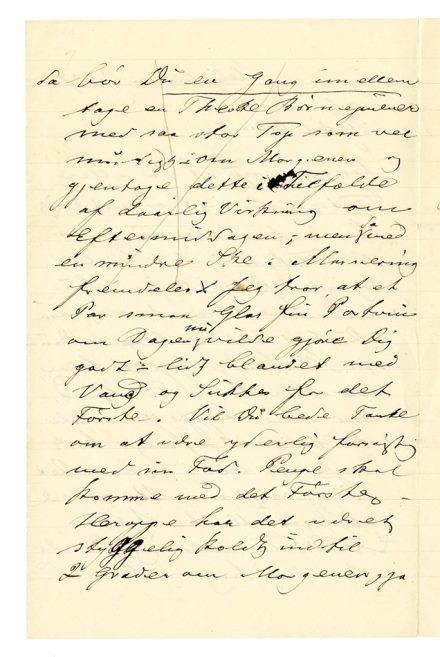 da bör Du en Gang imellem
tage en Theske Börnepulver
med saa stor Top som vel
muligt om Morgenen og
gjentage dette i Tilfælde
af daarlig Virkning om
Eftermiddagen, men da med
en mindre Ske:
fremdeles x Jeg tror, at et
Par smaa Glas fin Portvin
om Dagen nu vilde gjöre Dig
godt = lidt blandet med
Vand og Sukker for det
Förste. Vil Du bede Tante
om at være yderlig forsigtig
med sin Fod. Penge skal
komme med det Förste. –
Heroppe har det været
styggelig koldt, indtil
2 Grader om Morgenen, ja